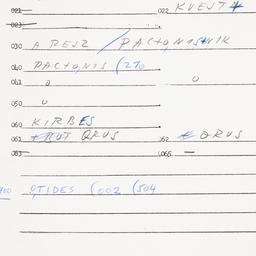 021 022 KVEST
023
030 AREJZ / PACTO,NISTNIK
040 PACTO,NIS (270
041 o o
050 o
060 KIRBES
061 QRUS 062 QRUS
063 065 —
900 0,TIDES (002 (504